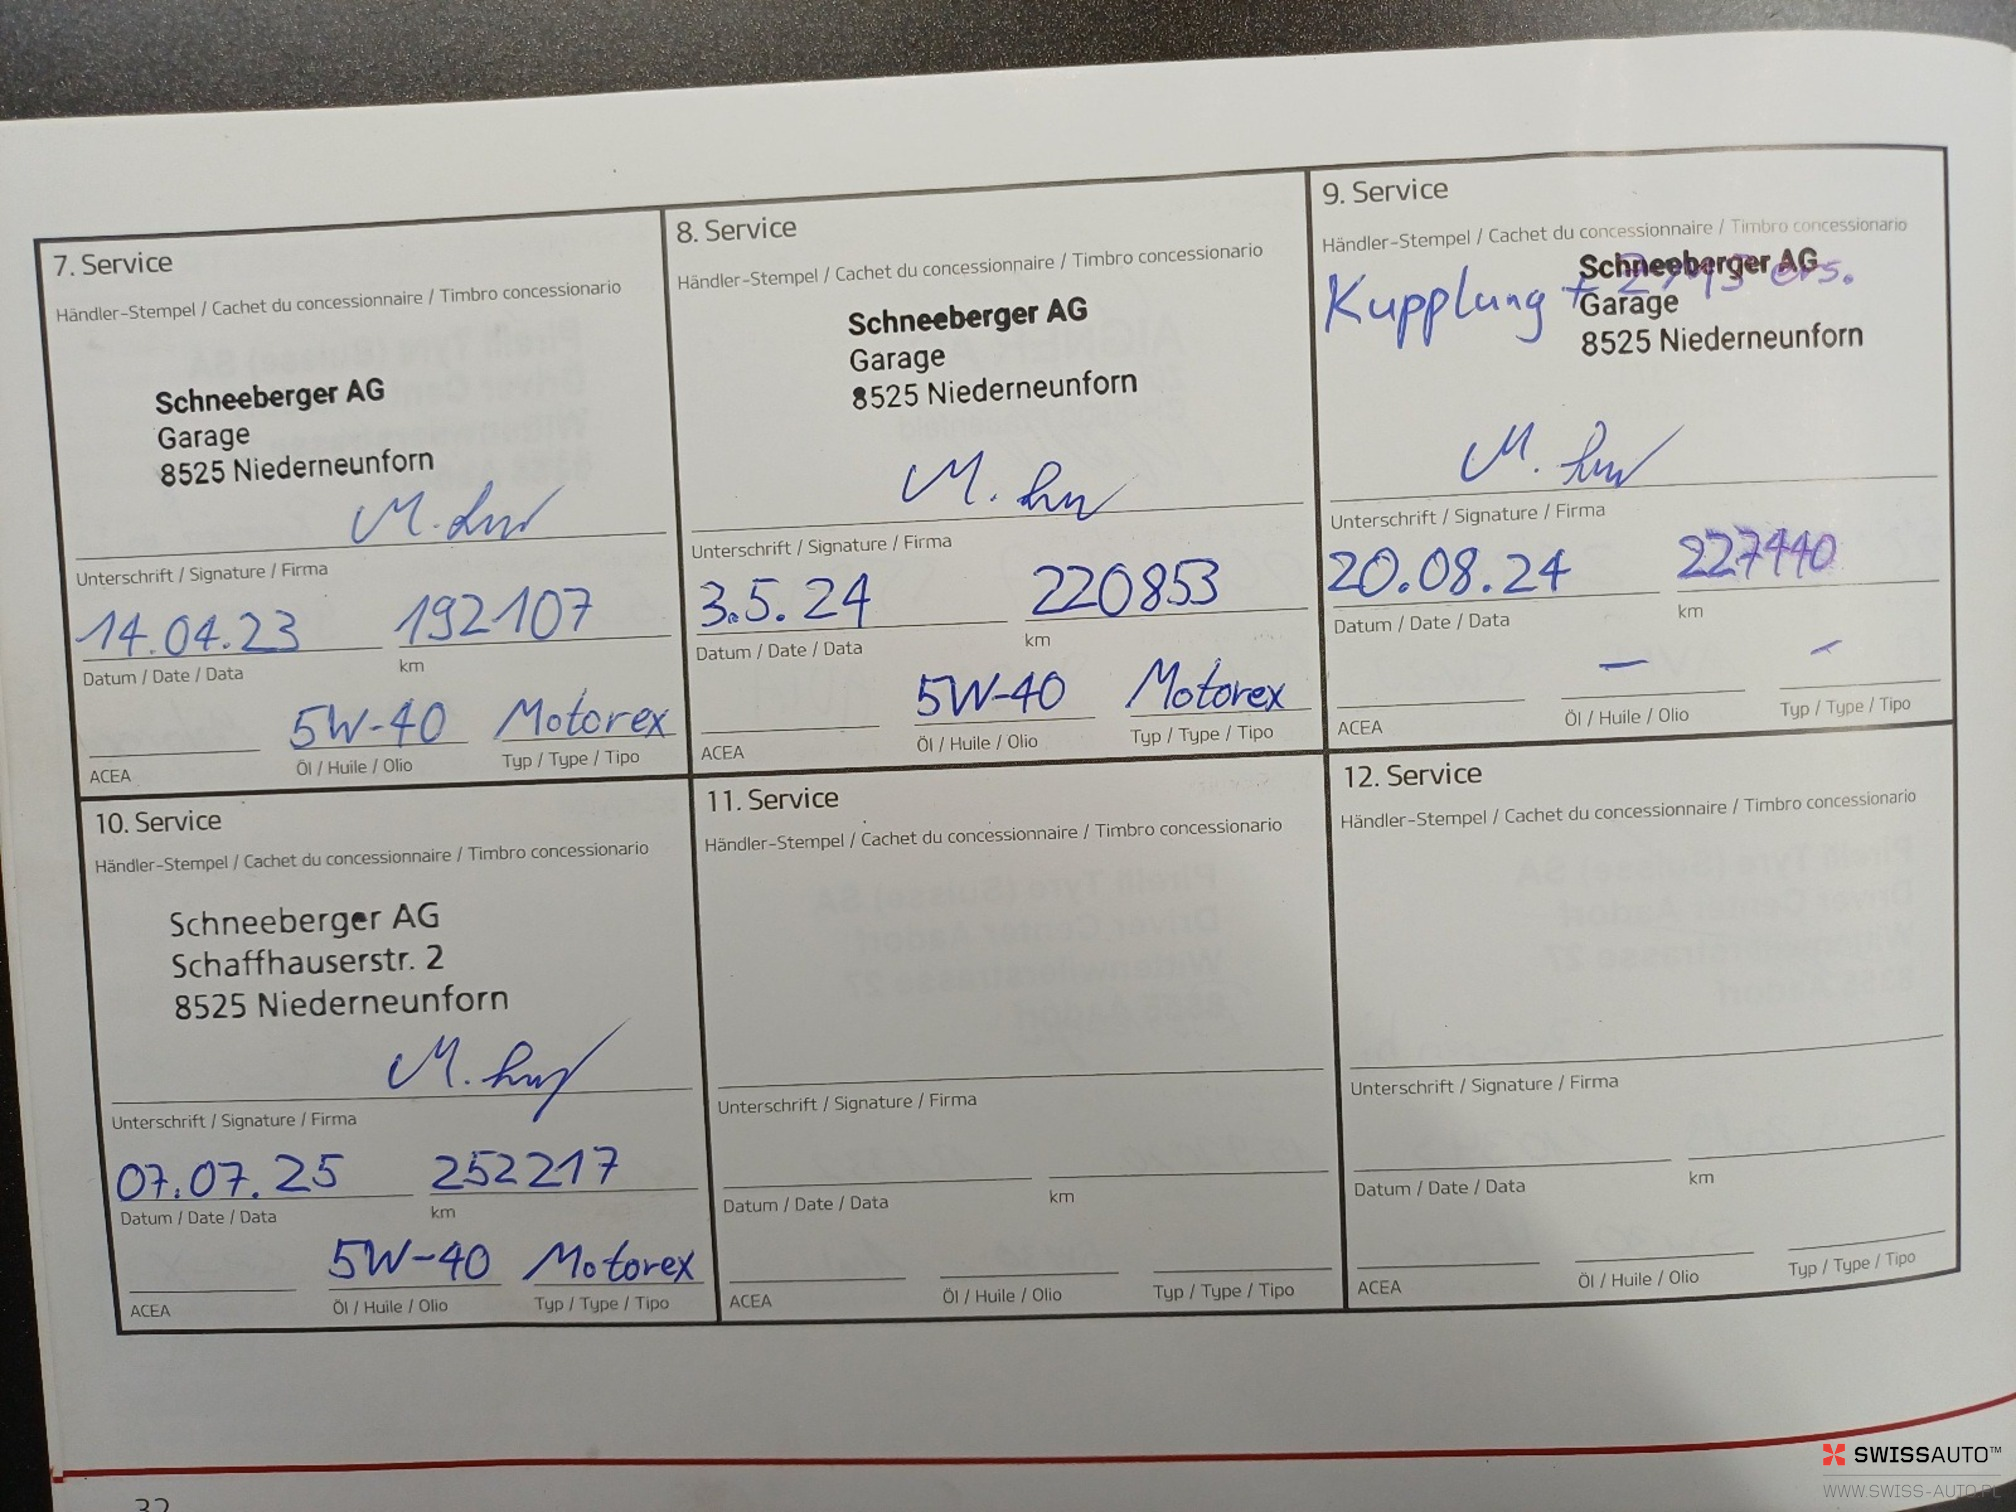 7. Service
Händler-Stempel / Cachet du concessionnaire / Timbro concessionario
Schneeberger AG
Garage
8525 Niederneunforn
Unterschrift / Signature / Firma
14.04.23 192107
Datum / Date / Data km
5W-40 Motorex
ACEA Öl / Huile / Olio Typ / Type / Tipo
8. Service
Händler-Stempel / Cachet du concessionnaire / Timbro concessionario
Schneeberger AG
Garage
8525 Niederneunforn
Unterschrift / Signature / Firma
3.5.24 220853
Datum / Date / Data km
5W-40 Motorex
ACEA Öl / Huile / Olio Typ / Type / Tipo
9. Service
Händler-Stempel / Cachet du concessionnaire / Timbro concessionario
Schneeberger AG
Kupplung + ers.
Garage
8525 Niederneunforn
Unterschrift / Signature / Firma
20.08.24 227440
Datum / Date / Data km
– –
ACEA Öl / Huile / Olio Typ / Type / Tipo
10. Service
Händler-Stempel / Cachet du concessionnaire / Timbro concessionario
Schneeberger AG
Schaffhauserstr. 2
8525 Niederneunforn
Unterschrift / Signature / Firma
07.07.25 252217
Datum / Date / Data km
5W-40 Motorex
ACEA Öl / Huile / Olio Typ / Type / Tipo
11. Service
Händler-Stempel / Cachet du concessionnaire / Timbro concessionario
Unterschrift / Signature / Firma
Datum / Date / Data km
ACEA Öl / Huile / Olio Typ / Type / Tipo
12. Service
Händler-Stempel / Cachet du concessionnaire / Timbro concessionario
Unterschrift / Signature / Firma
Datum / Date / Data km
ACEA Öl / Huile / Olio Typ / Type / Tipo
32
SWISSAUTO™
WWW.SWISS-AUTO.PL